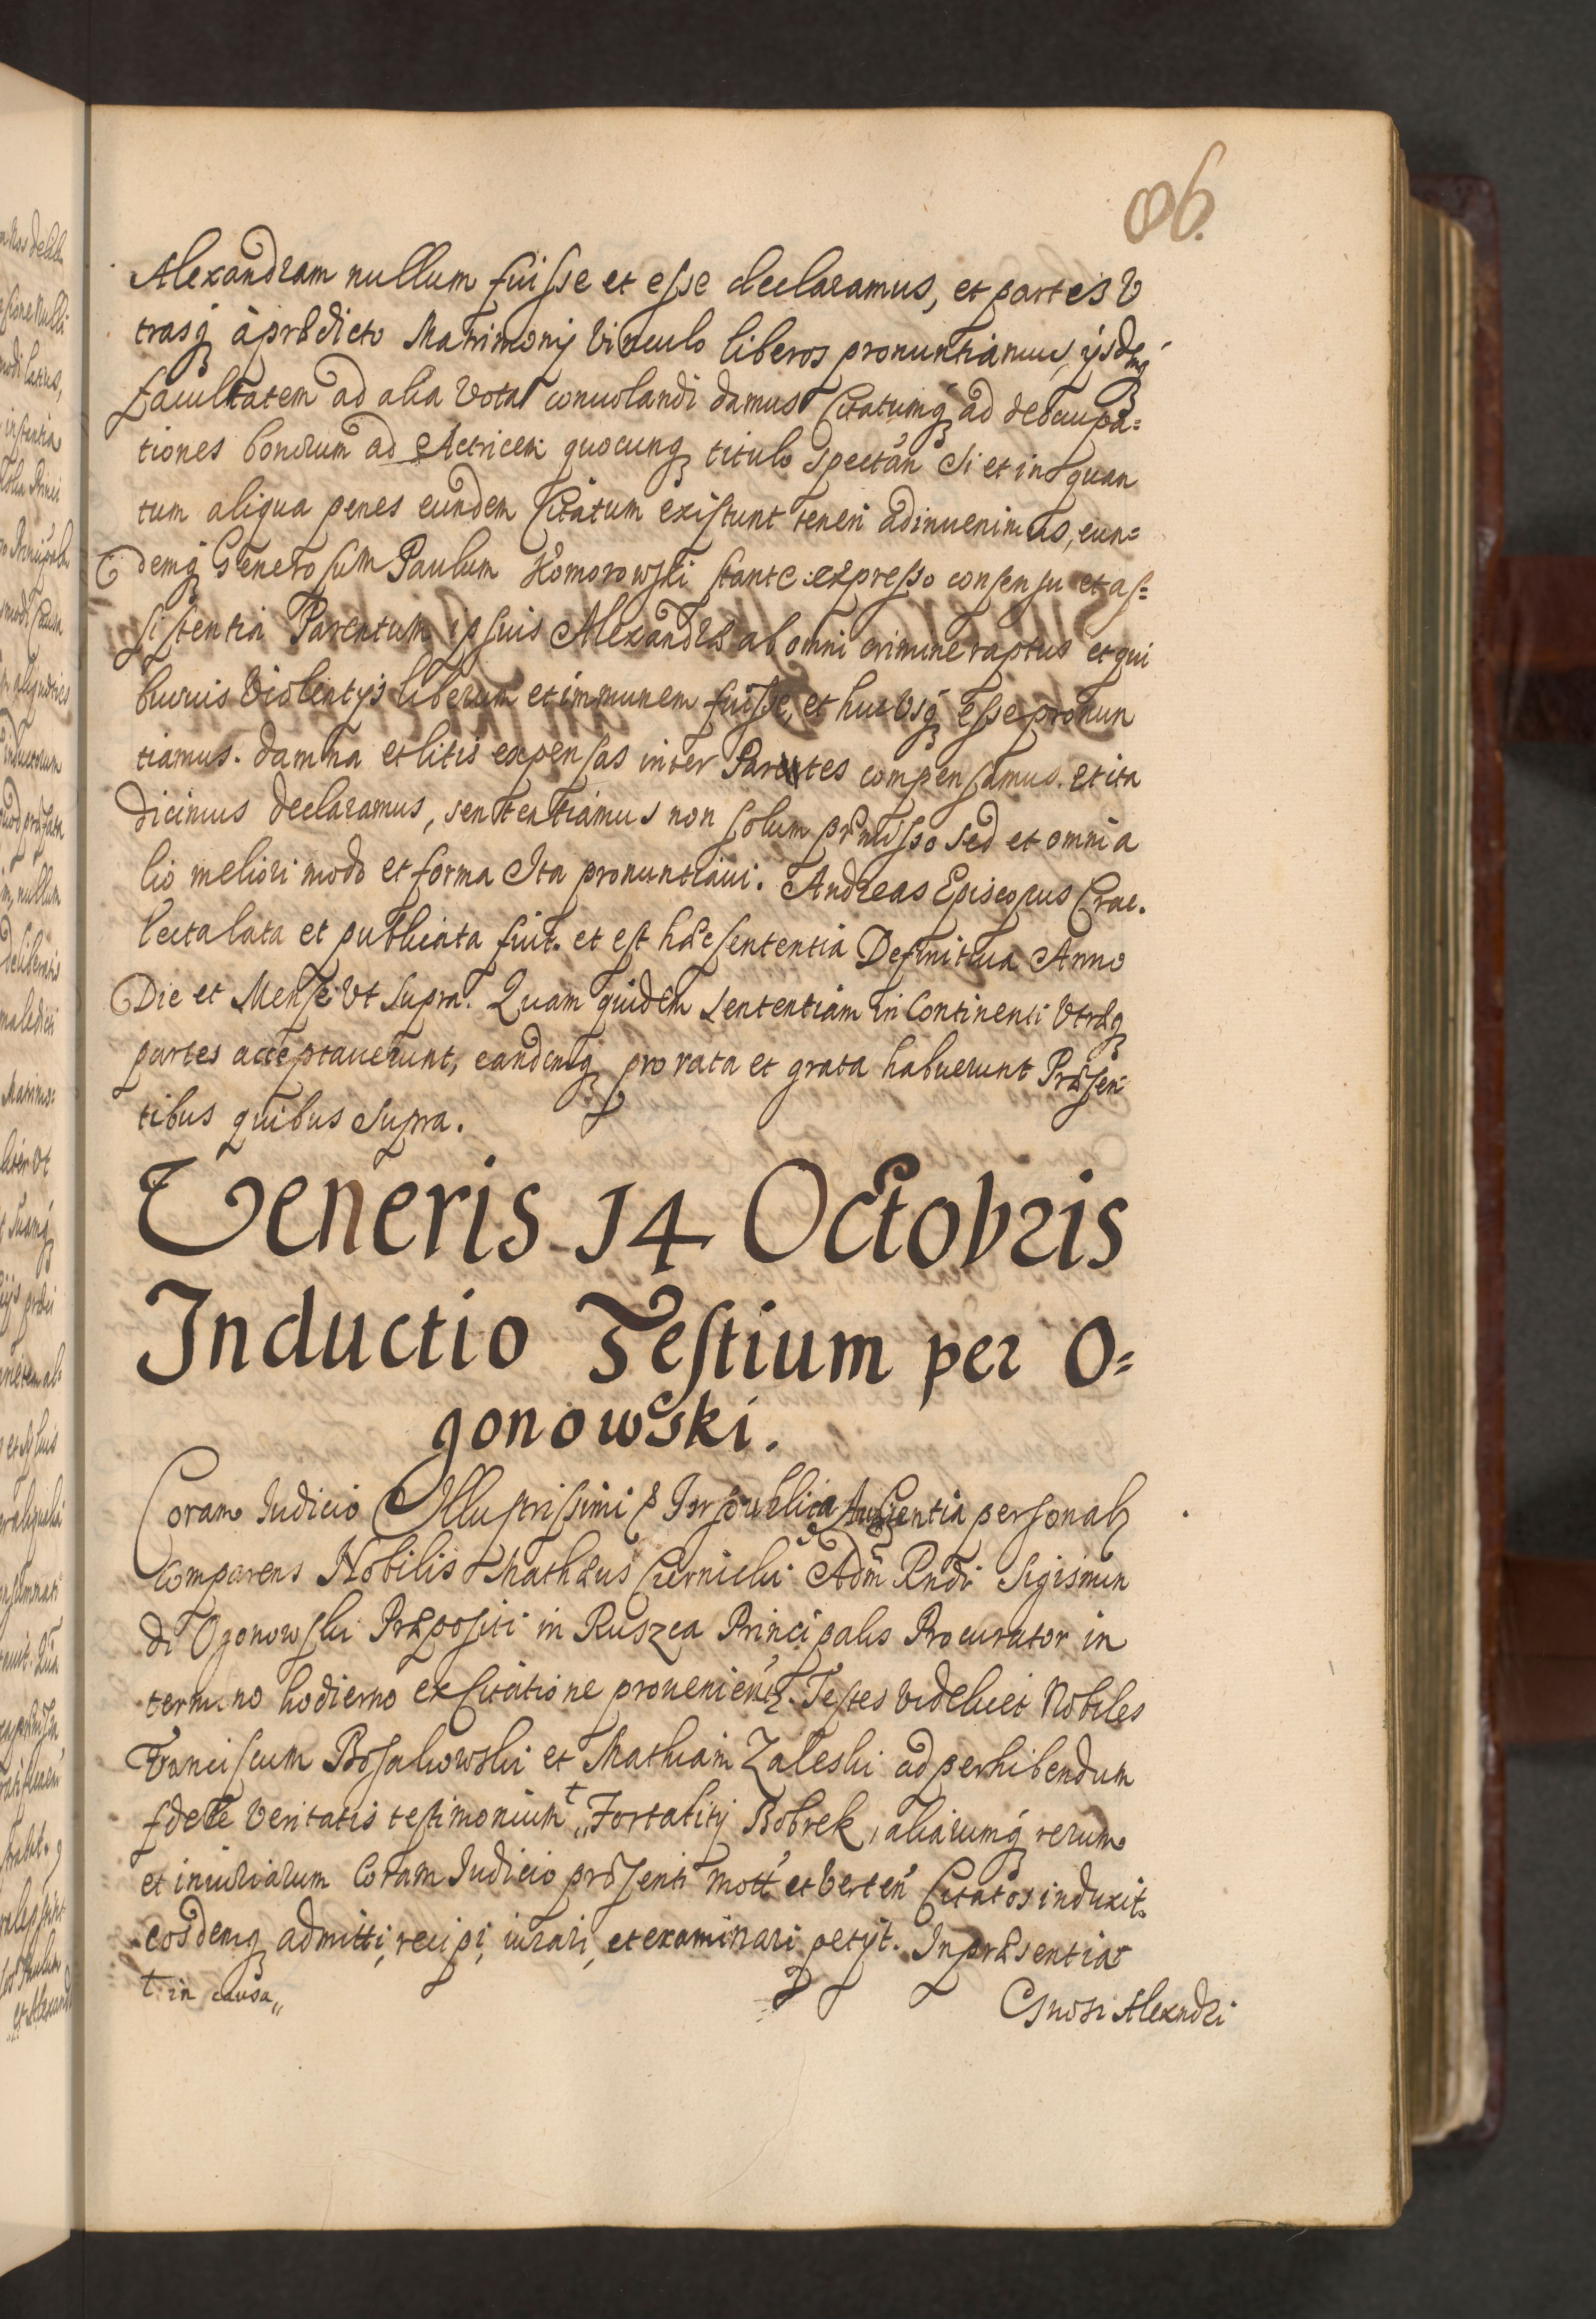 86.
Alexandram nullum fuisse et esse declaramus, et partes V
trasq̃ à prædicto Matrimonij Vinculo liberos pronuntiamus, ijsdemq̃
facultatem ad alia Vota conuolandi damus Citatumq̃ ad deoccupa=
tiones bonorum ad Actricem quocunq̃ titulo spectañ Si et in quan
tum aliqua penes eundem Citatum existunt teneri adinuenimus, eun=
demq̃ Generosum Paulum Komorowski stante expresso consensu et as=
sistentia Parentum ipsuis Alexandræ ab omni crimine raptus et qui
buvis Violentijs liberum et immunem fuisse, et huc Vsq̃ esse pronun
tiamus. damna et litis expensas inter Partes compensamus. et ita
dicimus declaramus, sententiamus non solum præmisso sed et omni a
lio meliori modo et forma Ita pronuntiaui. Andreas Episcopus Crac.
lecta lata et publicata fuit. et est hæc sententia Definitiua Anno
Die et Mense Vt Supra. Quam quidem sententiam in Continenti Vtræq̃
partes acceptauerunt, eandemq̃ pro rata et grata habuerunt Præsen
tibus quibus Supra.
Veneris 14 Octobris
Inductio Testium per O=
gonowski.
Coram Judicio Illustrissimi publica Audientia personalr
comparens Nobilis Mathæus Czernicki Adm Rndi Sigismun
di Ogonowski Præpositi in Ruszca Principalis Procurator in
termino hodierno ex Citatione provenient. Testes videlicet Nobiles
Franciscum Bosakowski et Mathiam Zaleski ad perhibendum
fidele Veritatis testimonium † Fortalitij Bobrek, aliarumq̃ rerum
et iniuriarum Coram Judicio præsenti mott̃ et verteñ Citatos induxit.
eosdemq̃ admitti, recipi, iurari, et examinari petijt. In præsentia
† in causa
Gnosi Alexndri